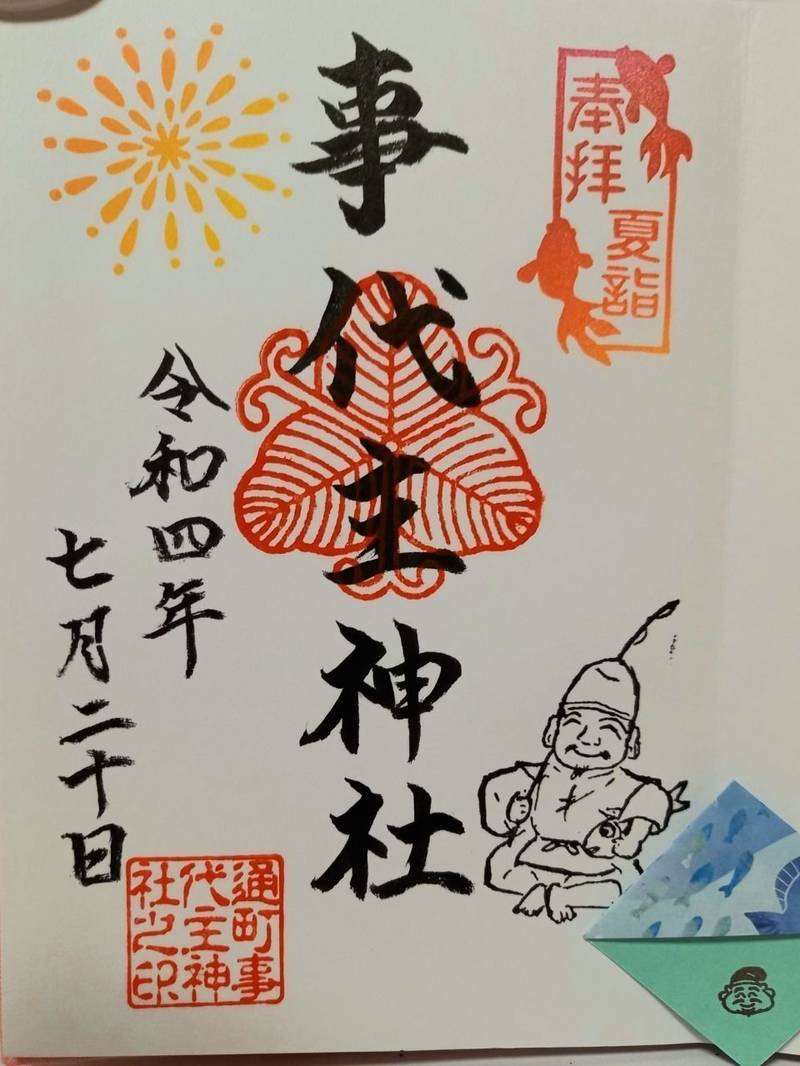 奉拝
夏詣
事代主神社
令和四年
七月二十日
通町事
代主神
社之印